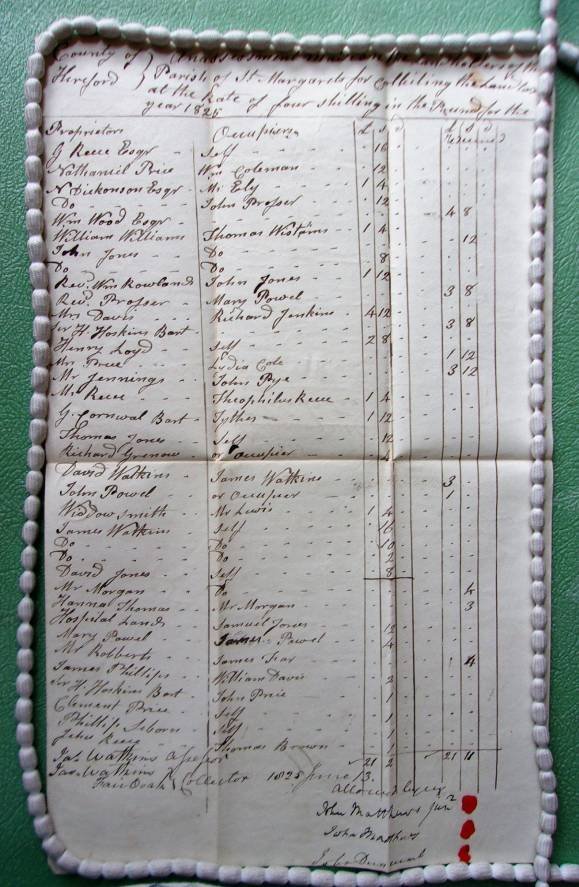 County of } An Assessment made on the Landholders of the
Hereford } Parish of St. Margarets for Collecting the Land Tax
at the Rate of four shilling in the Pound for the
year 1825
Proprietors Occupiers £ s d £ s d
G Reece Esqr Self 16
Nathaniel Price Wm Coleman 12
N Dickonson Esqr Mr Ely 1 4
Do John Prosser 12
Wm Wood Esqr 4 8
William Williams Thomas 1 4
John Jones Do 12
Do Do 8
Revd. Wm Rowlands John Jones 1 12
Revd. Prosser Mary Powel 3 8
Mrs Davis Richard Jenkins 4 12
Sir H Hoskins Bart 3 8
Henry Loyd Self 2 8
Mrs Price Lydia Cole 1 12
Mr Jennings John Pye 3 12
Mr Reece Theophilus Reece 1 4
G Cornwal Bart Tythes 1 12
Thomas Jones Self 12
Richard Grenow or Occupier 4
David Watkins James Watkins 3
John Powel or Occupier 1
Widdow Smith Mr Lewis 1 4
James Watkins Self 16
Do Do 10
Do Do 2
David Jones Self 8
Mr Morgan Do 4
Hanna Thomas Mr Morgan 3
Hospital Lands Samuel Jones 12
Mary Powel James Powel 4
Mr Robberts James 4
James Phillips William Davis 2
Sir H Hoskins Bart John Price 1
Clement Price Self 1
Phillip Seborn Self 1
John Reece Thomas Brown 1
Jas. Watkins Assessor 21 2 21 11
Jas. Watkins } Collector 1825 June 13
Fair Oak
Allowed by us
John Matthews Junr
John Matthews